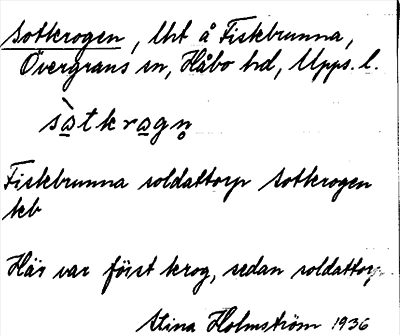 Sotkrogen, lht å Fiskbrunna,
Övergrans sn, Håbo hd, Upps. l.
sàtkragn̥
Fiskbrunna soldattorp Sotkrogen
kb
Här var först krog, sedan soldattorp
Stina Holmström 1936